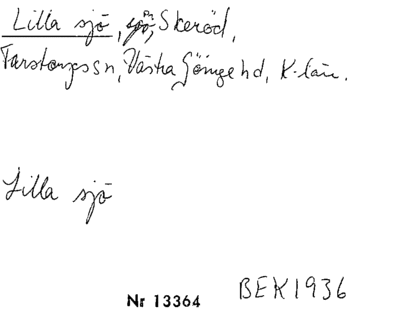 Lilla sjö, sjö, på Skeröd,
Farstorps sn, Västra Göinge hd, K-län.
Lilla sjö
Nr 13364 BEK 1936